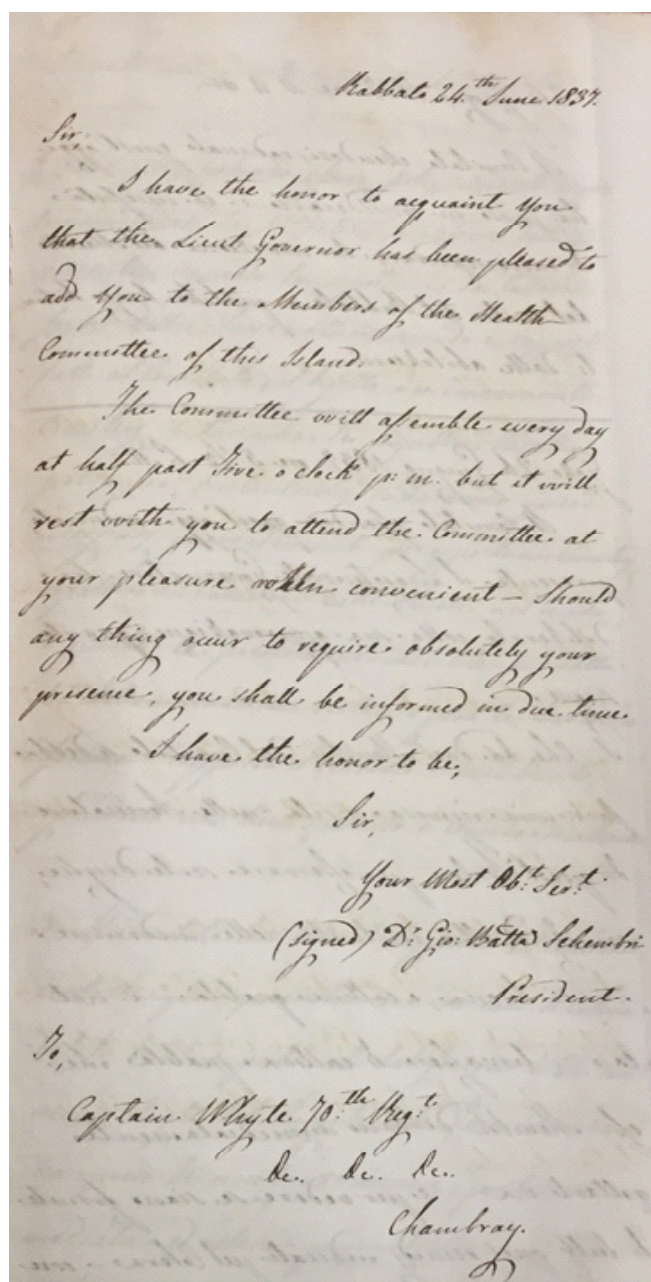 Rabbato 24th June 1837.
Sir,
I have the honor to acquaint you
that the Lieut Governor has been pleased to
add you to the Members of the Health
Committee of this Island.
The Committee will assemble every day
at half past Five o'clock p: m. but it will
rest with you to attend the Committee at
your pleasure when convenient – Should
any thing occur to require absolutely your
presence, you shall be informed in due time.
I have the honor to be,
Sir,
Your Most Obt. Sert.
(signed) Dr. Gio: Batta Schembri
President.
To,
Captain Whyte 70th Regt.
&c. &c. &c.
Chambray.